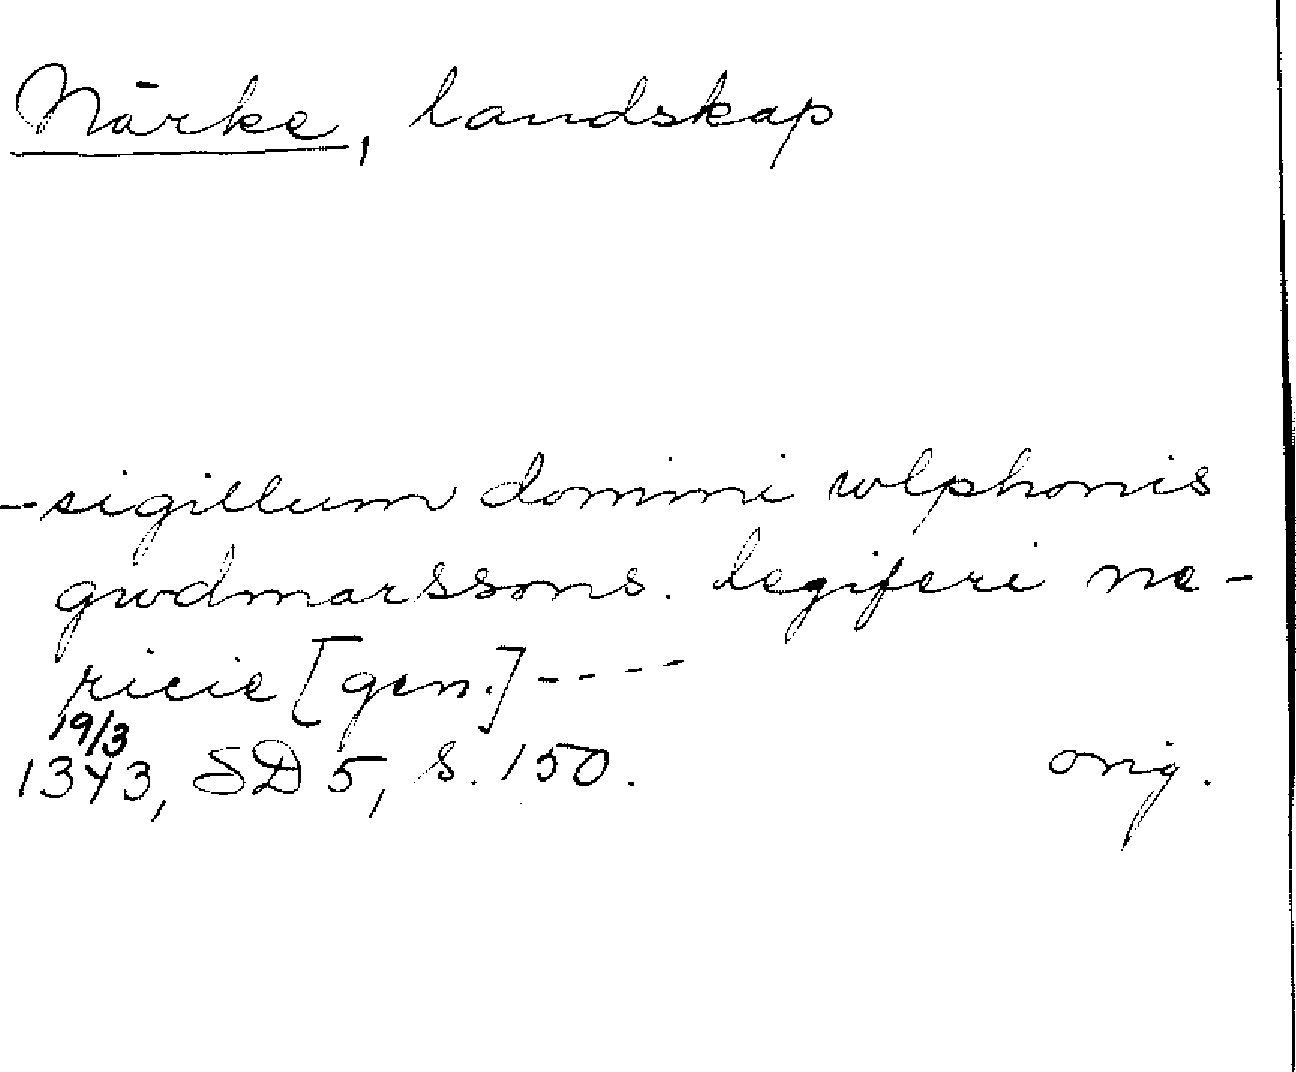 Närke, landskap
-sigillum domini wlphonis
gwdmarssons. legiferi ne-
ricie [gen.] ----
19/3
1343, SD 5, s. 150. orig.